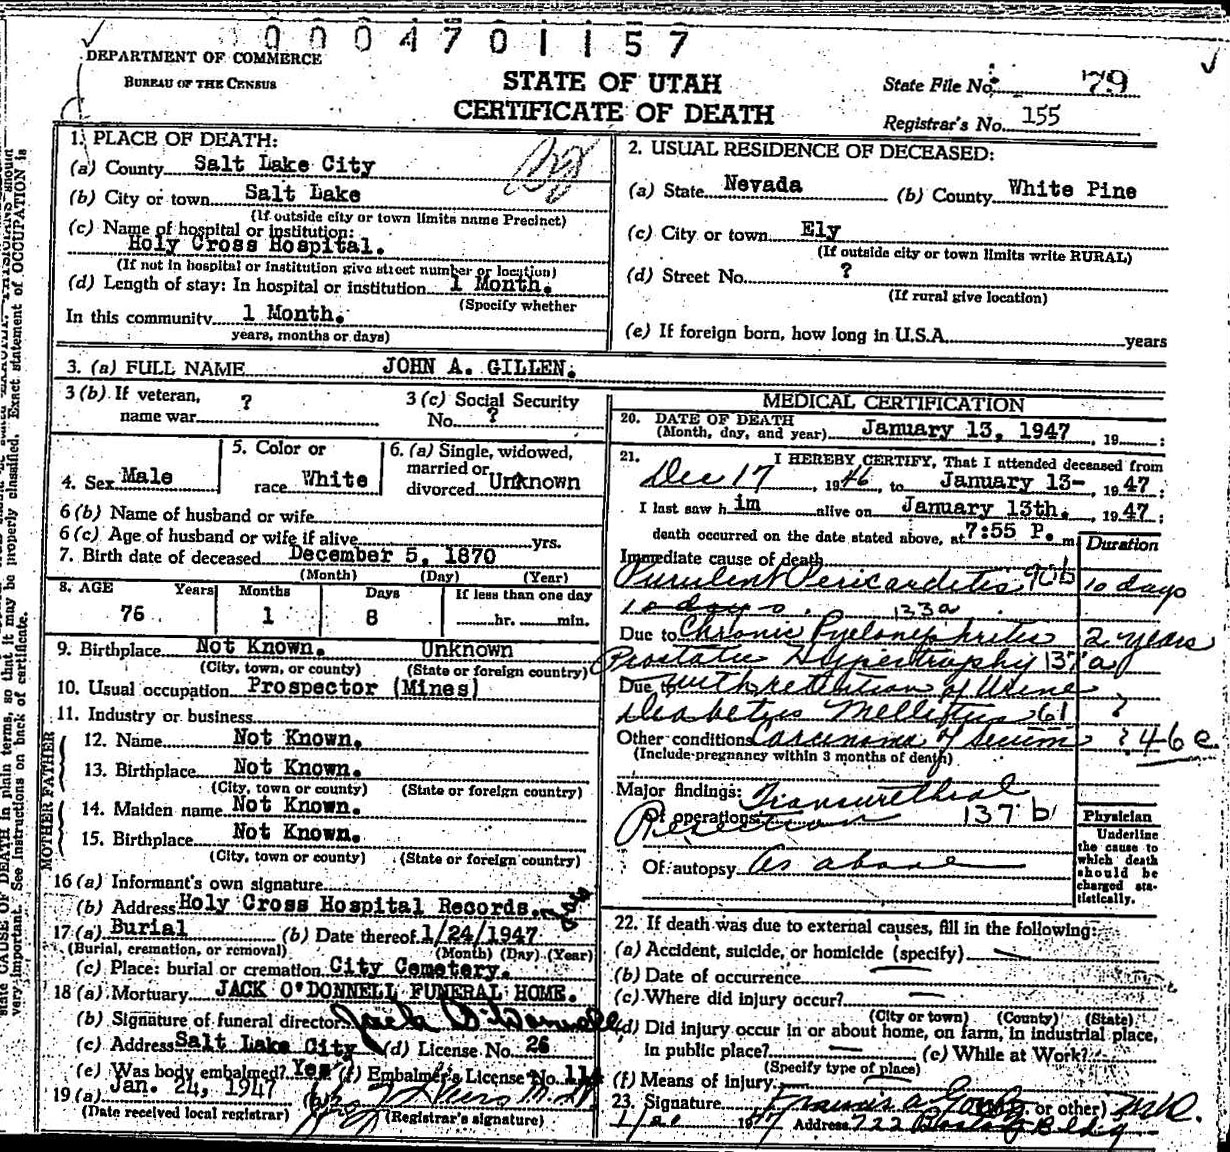 0004701157
DEPARTMENT OF COMMERCE
BUREAU OF THE CENSUS
STATE OF UTAH
CERTIFICATE OF DEATH
State File No. 79
Registrar's No. 155
1. PLACE OF DEATH:
(a) County Salt Lake City
(b) City or town Salt Lake
(If outside city or town limits name Precinct)
(c) Name of hospital or institution:
Holy Cross Hospital.
(If not in hospital or institution give street number or location)
(d) Length of stay: In hospital or institution 1 Month.
(Specify whether
In this community 1 Month.
years, months or days)
2. USUAL RESIDENCE OF DECEASED:
(a) State Nevada (b) County White Pine
(c) City or town Ely
(If outside city or town limits write RURAL)
(d) Street No. ?
(If rural give location)
(e) If foreign born, how long in U.S.A. years
3. (a) FULL NAME JOHN A. GILLEN.
3 (b) If veteran, name war ?
3 (c) Social Security No. ?
4. Sex Male
5. Color or race White
6. (a) Single, widowed, married or divorced Unknown
6 (b) Name of husband or wife
6 (c) Age of husband or wife if alive yrs.
7. Birth date of deceased December 5, 1870
(Month) (Day) (Year)
8. AGE Years Months Days If less than one day
76 1 8 hr. min.
9. Birthplace Not Known. Unknown
(City, town, or county) (State or foreign country)
10. Usual occupation Prospector (Mines)
11. Industry or business
FATHER
12. Name Not Known.
13. Birthplace Not Known.
(City, town or county) (State or foreign country)
MOTHER
14. Maiden name Not Known.
15. Birthplace Not Known.
(City, town or county) (State or foreign country)
16 (a) Informant's own signature
(b) Address Holy Cross Hospital Records.
17 (a) Burial (b) Date thereof 1/24/1947
(Burial, cremation, or removal) (Month) (Day) (Year)
(c) Place: burial or cremation City Cemetery.
18 (a) Mortuary JACK O'DONNELL FUNERAL HOME.
(b) Signature of funeral director Jack O'Donnell
(c) Address Salt Lake City (d) License No. 26
(e) Was body embalmed? Yes (f) Embalmer's License No. 114
19 (a) Jan. 24, 1947 (b)
(Date received local registrar) (Registrar's signature)
MEDICAL CERTIFICATION
20. DATE OF DEATH
(Month, day, and year) January 13, 1947, 19 :
21. I HEREBY CERTIFY, That I attended deceased from
Dec 17, 1946, to January 13-, 1947;
I last saw him alive on January 13th. 1947;
death occurred on the date stated above, at 7:55 P. m
Duration
Immediate cause of death
Purulent Pericarditis 90b 10 days
10 days. 133a
Due to Chronic Pyelonephritis 2 years
Prostatic Hypertrophy 137a
Due to with retention of Urine
Diabetes Mellitus 61 ?
Other conditions Carcinoma of ? 46e
(Include pregnancy within 3 months of death)
Major findings: Transurethral
Of operations Resection 137b
Of autopsy As above
Physician
Underline
the cause to
which death
should be
charged sta-
tistically.
22. If death was due to external causes, fill in the following:
(a) Accident, suicide, or homicide (specify)
(b) Date of occurrence
(c) Where did injury occur?
(City or town) (County) (State)
(d) Did injury occur in or about home, on farm, in industrial place,
in public place? (e) While at Work?
(Specify type of place)
(f) Means of injury
23. Signature Francis A. or other)
Address 722 Boston Bldg
state CAUSE OF DEATH in plain terms, so that it may be properly classified. Exact statement of OCCUPATION is
very important. See instructions on back of certificate.